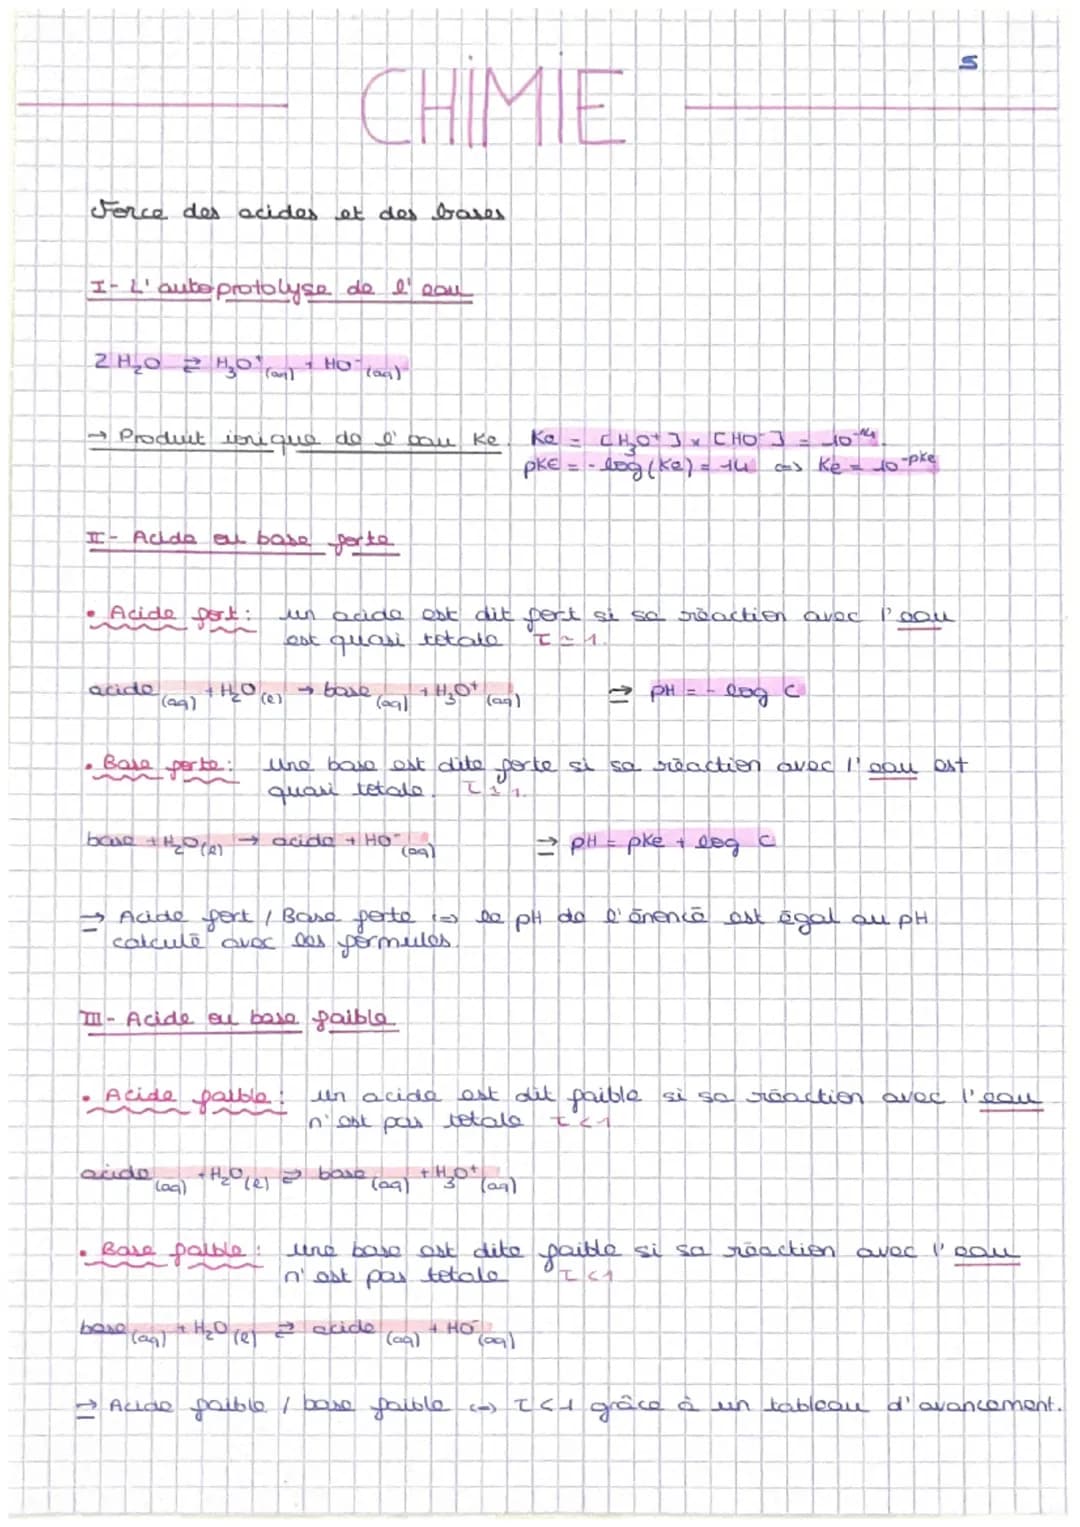 5
CHIMIE
Force des acides et des bases
I- L'autoprotolyse de l'eau
2 H₂O ⇄ H₃O⁺(aq) + HO⁻(aq)
→ Produit ionique de l'eau Ke. Ke = [H₃O⁺] × [HO⁻] = 10⁻¹⁴.
pKE = - log(Ke) = 14 <=> Ke = 10⁻ᵖᴷᵉ
II- Acide ou base forte
• Acide fort : un acide est dit fort si sa réaction avec l'eau
est quasi totale τ ≈ 1.
acide(aq) + H₂O(l) → base(aq) + H₃O⁺(aq) ⇒ pH = - log C
• Base forte : une base est dite forte si sa réaction avec l'eau est
quasi totale. τ ≈ 1.
base + H₂O(l) → acide + HO⁻(aq) ⇒ pH = pKe + log C
⇒ Acide fort / Base forte <=> le pH de l'énoncé est égal au pH
calculé avec les formules.
III- Acide ou base faible
• Acide faible : un acide est dit faible si sa réaction avec l'eau
n'est pas totale τ < 1
acide(aq) + H₂O(l) ⇄ base(aq) + H₃O⁺(aq)
• Base faible : une base est dite faible si sa réaction avec l'eau
n'est pas totale τ < 1
base(aq) + H₂O(l) ⇄ acide(aq) + HO⁻(aq)
⇒ Acide faible / base faible <=> τ < 1 grâce à un tableau d'avancement.